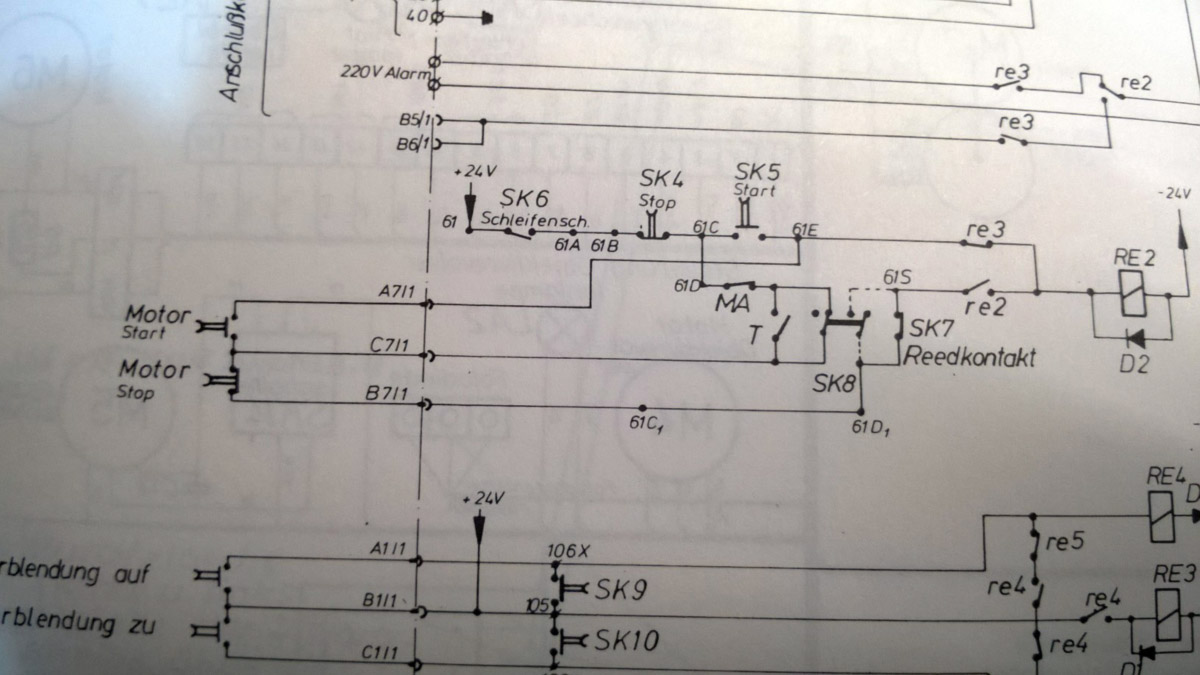 Anschlußk
40
220V Alarm
re3
re2
B5/1
B6/1
re3
+24V
61
SK6
Schleifensch.
61A
61B
SK4
Stop
61C
SK5
Start
61E
re3
-24V
RE2
D2
A7/1
61D
MA
T
61S
re2
SK7
Reedkontakt
SK8
Motor
Start
C7/1
Motor
Stop
B7/1
61C1
61D1
+24V
RE4
D
rblendung auf
A1/1
106X
SK9
re5
re4
RE3
B1/1
105
re4
rblendung zu
SK10
re4
C1/1